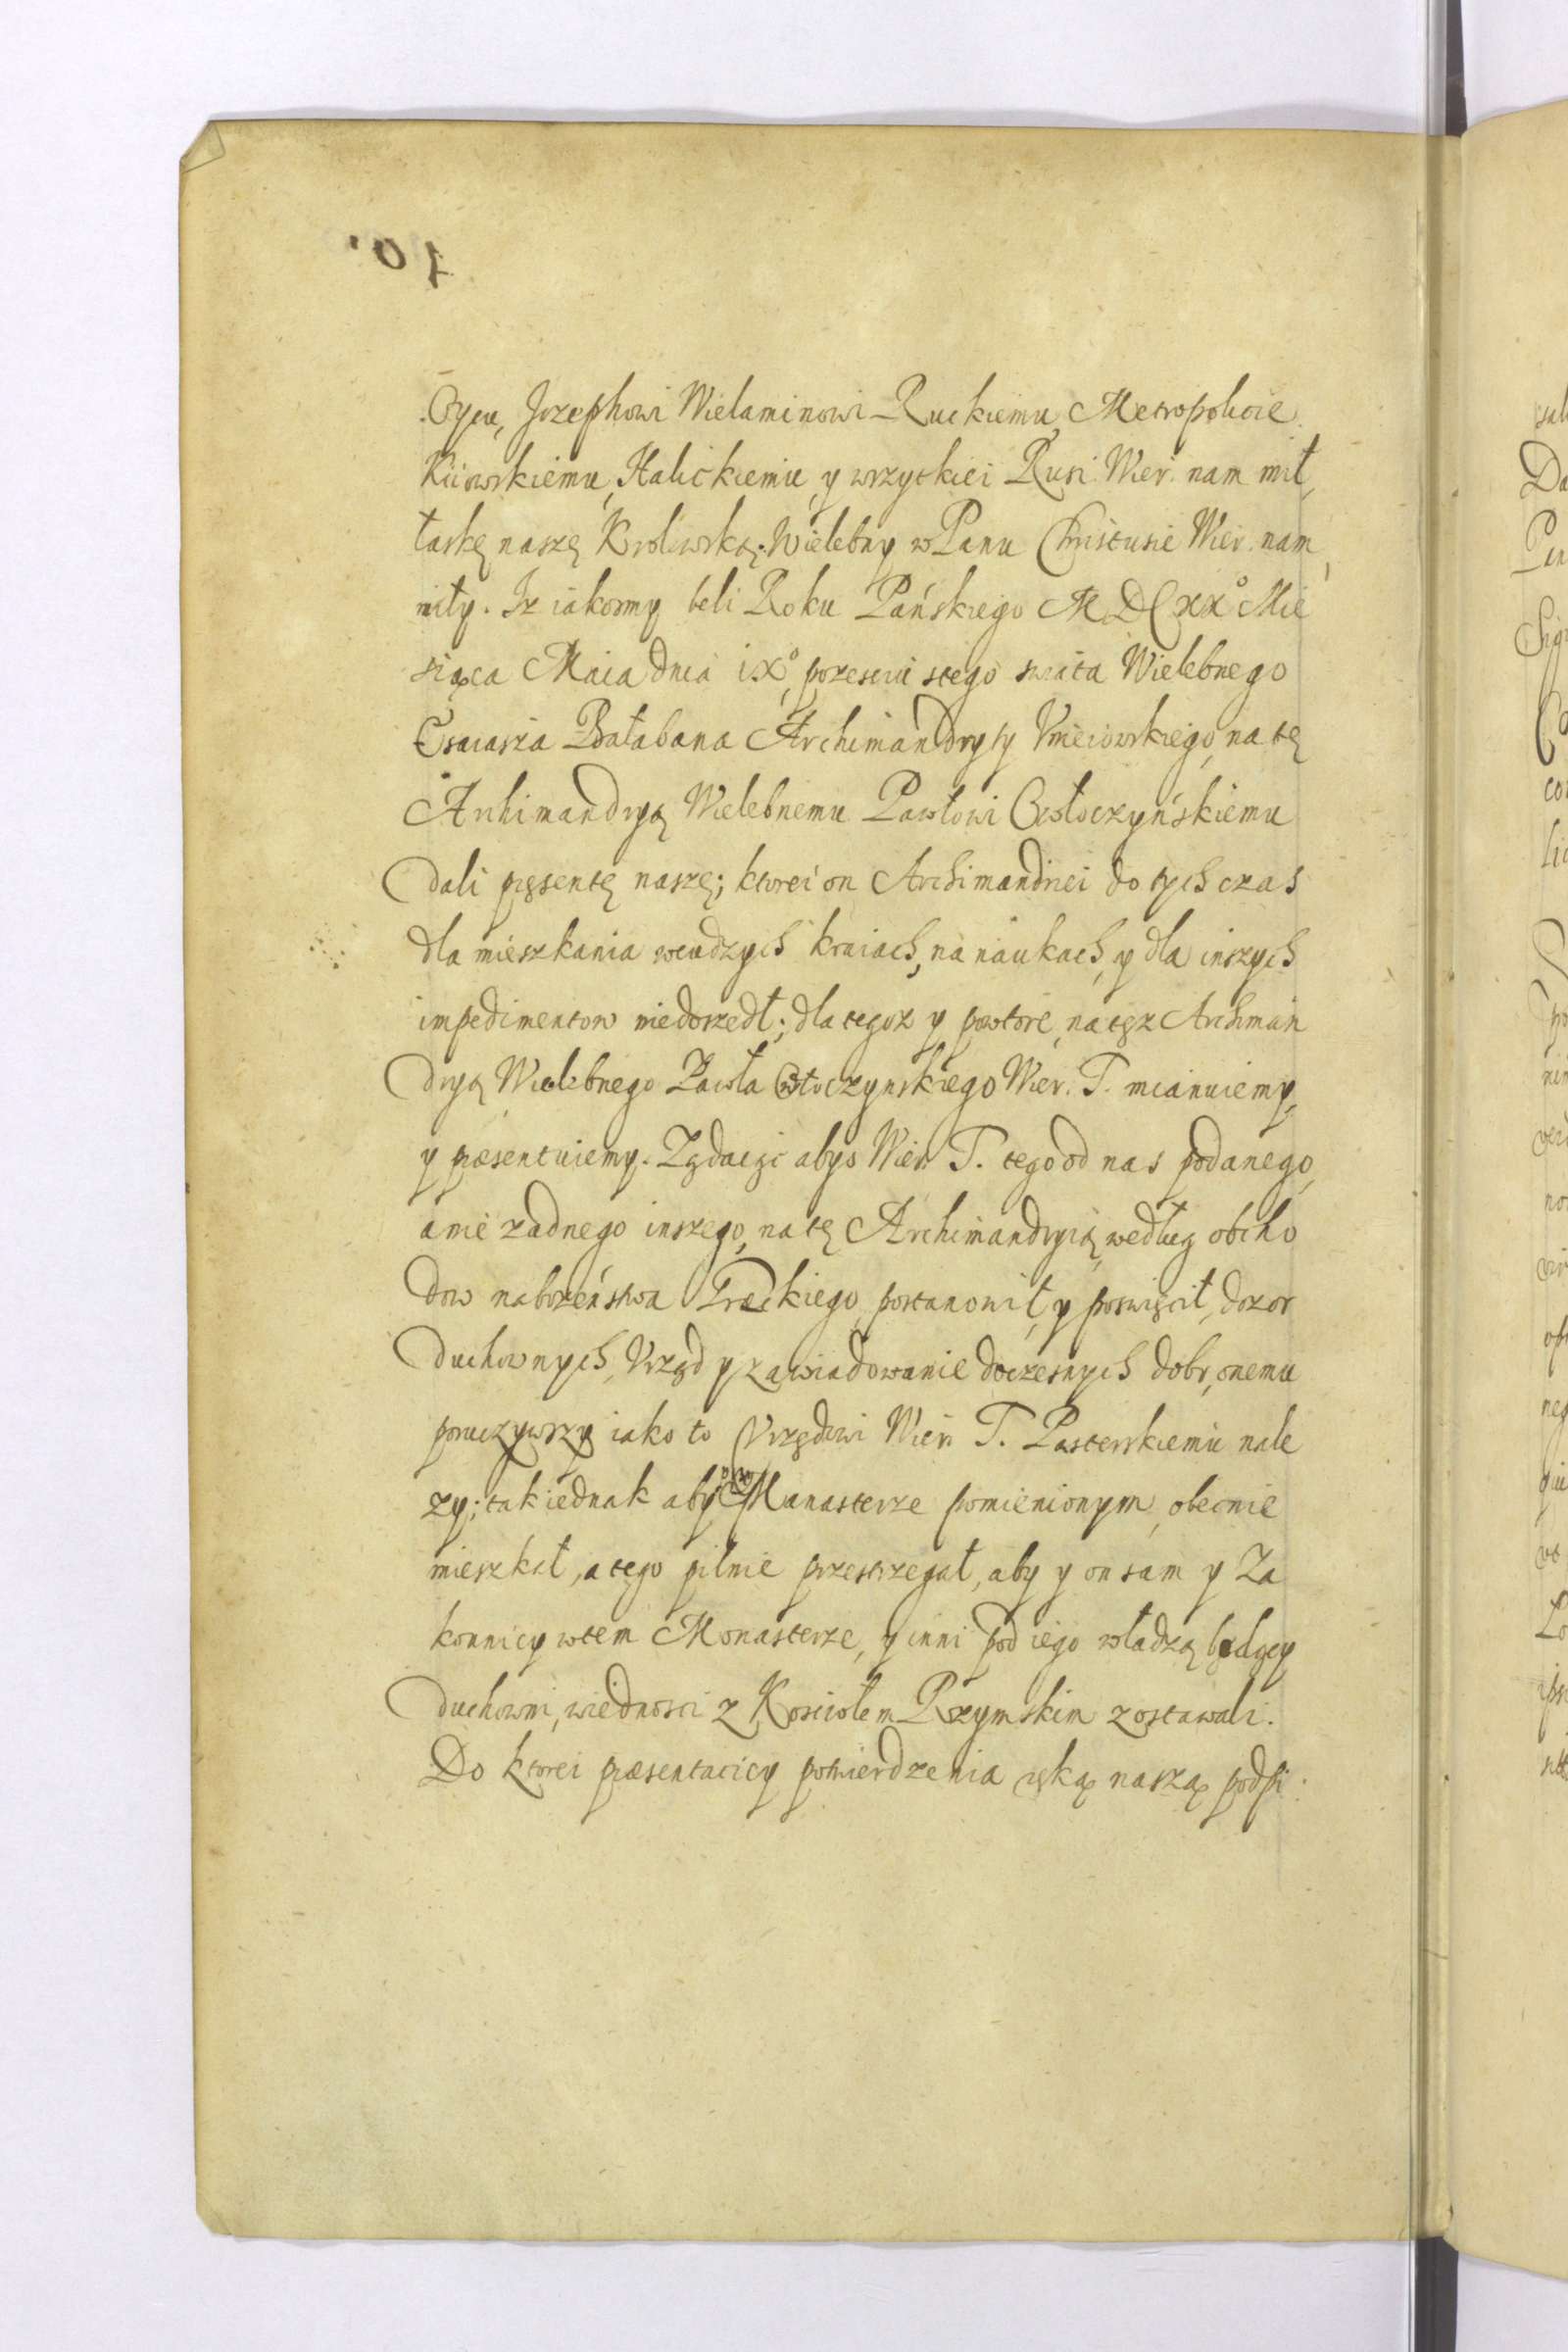 10.
Oycu, Jozephowi Wielaminowi Ruckiemu, Metropolicie
Kiiowskiemu, Halickiemu, y wszytkiei Rusi. Wier. nam mił,
łaskę naszę Krolewską. Wielebny w Panu Christusie Wier. nam
miły. Iz iakosmy beli Roku Pańskiego M. DCXX° Mie
siąca Maia dnia iX°, po zesciu stego swiata Wielebnego
Esaiasza Bałabana Archimandryty Vniewskiego, na tę
Archimandryą Wielebnemu Pawłowi Owłoczyńskiemu
dali pręsentę naszę; ktorei on Archimandriei do tych czas
dla mieszkania wcudzych kraiach, na naukach, y dla inszych
impedimentow niedoszedł; dla tegoz y powtore, na tęz Archiman
dryą Wielebnego Pawła Owłoczynskiego Wier. T. mianuiemy,
y præsentuiemy. Ządaiąc abys Wier. T. tego od nas podanego,
a nie zadnego inszego, na tę Archimandryią według obcho
dow nabozeństwa Græckiego postanowił, y poswięcił, dozor
duchownych, Vrząd y zawiadowanie doczesnych dobr, onemu
poruczywszy iako to Vrzędowi Wier. T. Pasterskiemu nale
zy; tak iednak aby on w Manasterze pomienionym, obecnie
mieszkał, a tego pilnie przestrzegał, aby y on sam y Za
konnicy wtem Monasterze, y inni pod iego władzą będący
duchowni, wiednosci z Kosciołem Rzymskim zostawali.
Do ktorei præsentaciey potwierdzenia ręką naszą podpi